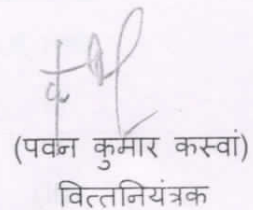 (पवन कुमार कस्वां)
वित्तनियंत्रक